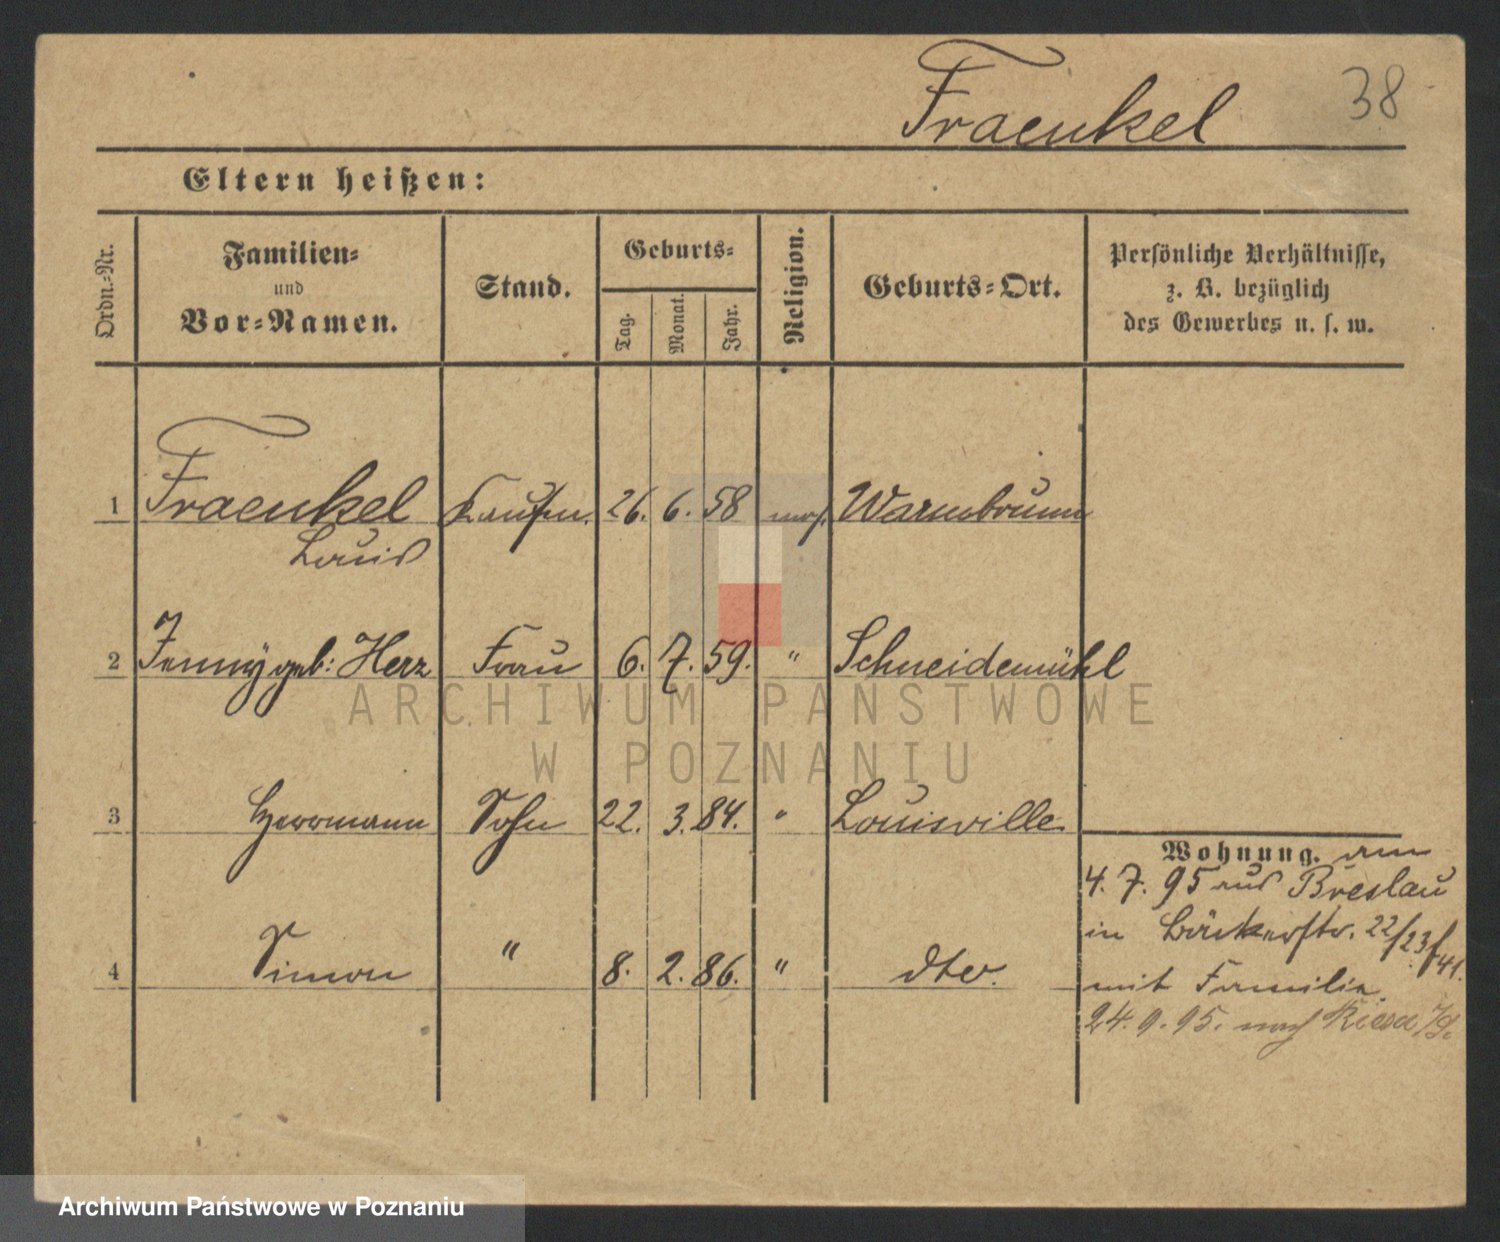 Fraenkel 38
Eltern heißen:
Ordn.-Nr.
Familien-
und
Vor-Namen.
Stand.
Geburts-
Tag.
Monat.
Jahr.
Religion.
Geburts-Ort.
Persönliche Verhältnisse,
z. B. bezüglich
des Gewerbes u. s. w.
1 Fraenkel Kaufm. 26. 6. 58 mos. Warmbrunn
Louis
2 Jenny geb: Herz Frau 6. 7. 59. " Schneidemühl
ARCHIWUM PAŃSTWOWE
W POZNANIU
3 Herrmann Sohn 22. 3. 84. " Louisville
4 Simon " 8. 2. 86. " dto.
Wohnung. am
4. 7. 95 aus Breslau
in Bäckerstr. 22/23
mit Familie.
24. 9. 95. nach Riesa
Archiwum Państwowe w Poznaniu